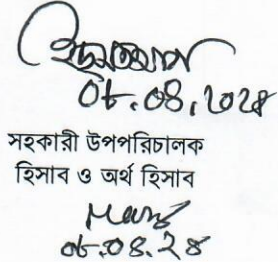 ০৮.০৪.২০২৪
সহকারী উপপরিচালক
হিসাব ও অর্থ হিসাব
০৮.০৪.২৪